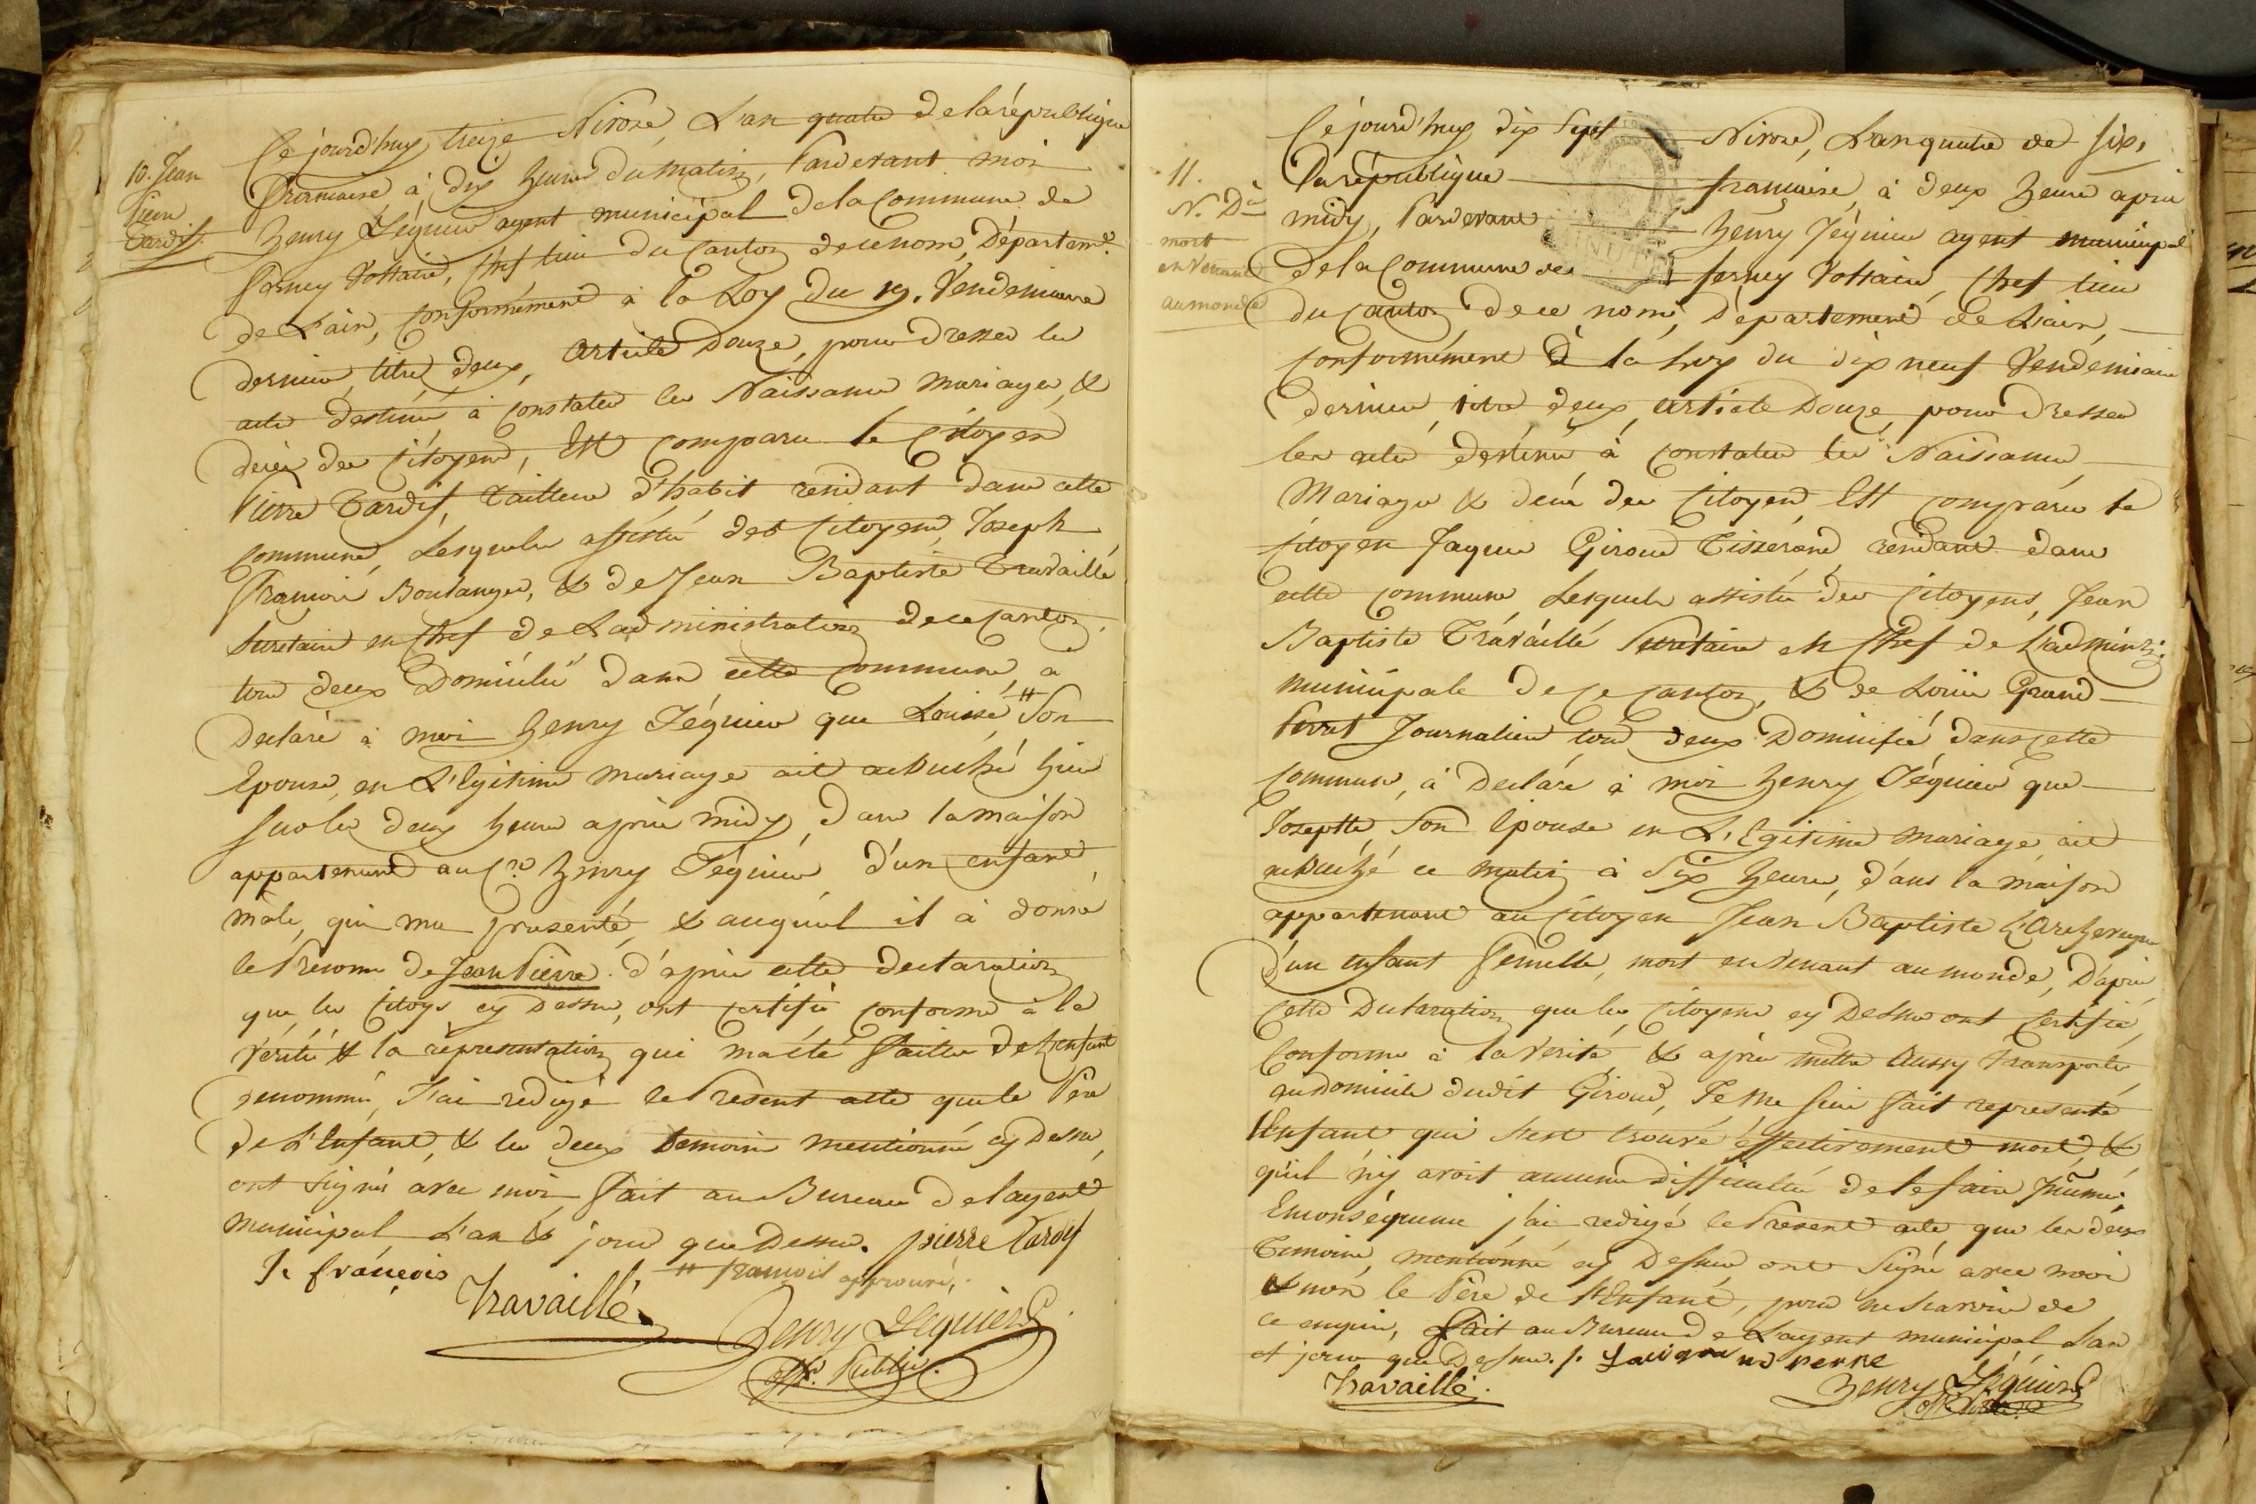 10. Jean
Pierre
Tardif.
Ce jourd'huy treize Nivose, L'an quatre de la république
francaise à dix heure du matin, Pardevant moi
henry Séguier agent municipal de la Commune de
ferney Voltaire, chef lieu du Canton de ce nom, Départemt.
de L'ain, Conformément à la Loy du 19. Vendemiaire
dernier, titre deux, Article Douze, pour Dresser les
acte destiné à Constater les Naissance mariage, &
décès des Citoyens, Est comparu le Citoyen
Pierre Tardif, Tailleur d'habit residant dans cette
Commune, Lesquels assisté des Citoyens, Joseph
François Boulanger, & de Jean Baptiste Travaillé
Secretaire en Chef de L'administration de ce Canton,
tous deux Domicilié dans cette Commune, a
Declaré à moi henry Séguier que Louise # Son
Epouse, en L'Egitime mariage ait accouché hier
sur les deux heure après midy, Dans la maison
appartenant au Cn. henry Séguier, d'un enfant
mâle, qui ma presenté, & auquel il à donné
le Prenom de Jean Pierre. d'après cette declaration
que les Citoys. cy Dessus, ont certifié conforme à la
Vérité & la representation qui ma été faitte de L'enfant
denommé, J'ai redigé le Present acte que le Père
de L'Enfant, & les deux temoins mentionné cy Dessus,
ont signés avec moi, fait au Bureau de l'agent
municipal L'an & jour que Dessus. pierre Tardy
# francois approuvé.
Js françois
Travaillé
henry Séguier
off. Public.
11.
N. De
mort
en Venant
au monde
Ce jourd'huy dix Sept Nivose, L'an quatre de six,
la république francaise, à deux heure après
midy, Pardevant henry Séguier agent municipal
de la Commune de ferney Voltaire, Chef lieu
du Canton de ce nom, Département de L'ain,
Conformément à la Loy du dix neuf Vendémiaire
dernier, titre deux, article Douze, pour Dresser
les acte destiné à Constater les Naissance
Mariage & décès des Citoyens, Est comparu le
Citoyen Jaques Giroud Tisserand, residant dans
cette commune, Lesquels assisté des Citoyens, Jean
Baptiste Travaillé Secretaire en Chef de L'admin.
municipale de ce Canton, & de Louis Grand
Journalier tous deux Domicilié dans cette
Commune, à declaré à moi henry Séguier que
Josephte Son Epouse en L'Egitime mariage, ait
accouché ce matin à Six heure, dans la maison
appartenant au Citoyen Jean Baptiste
d'un enfant femelle, mort en Venant au monde, D'après
cette Declaration que les Citoyens cy Dessus ont certifié,
Conforme à la Verité, & après mêtre Aussy transporté
au domicile dudit Giroud, Je me suis fait representé
L'Enfant qui s'est trouvé effectivement mort, &
qu'il n'y avoit aucune difficulté de le faire Inhumé,
En conséquence j'ai redigé le Present acte, que les deux
Temoins, mentionné cy Dessus ont signé avec moi
& non le Père de L'Enfant, pour ne savoir de
ce enquis, fait au Bureau de L'agent municipal, L'an
et jour que Dessus.
Travaillé.
henry Séguier